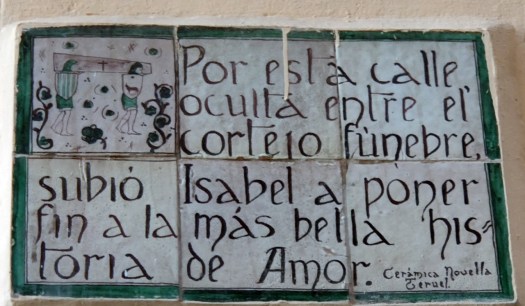 Por esta calle
oculta entre el
cortejo fúnebre,
subió Isabel a poner
fin a la más bella his=
toria de Amor.
Cerámica Novella
Teruel.